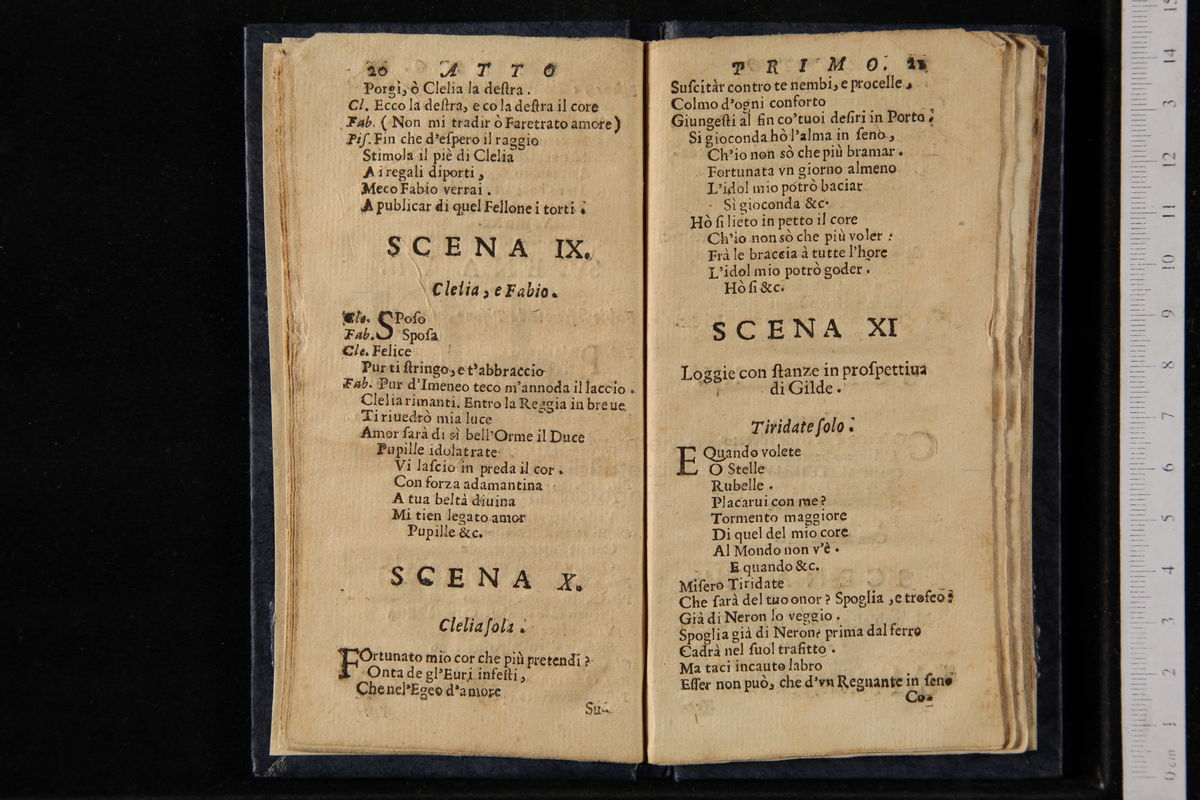 20 ATTO
Porgi, ò Clelia la destra.
Cl. Ecco la destra, e co la destra il core
Fab. (Non mi tradir ò Faretrato amore)
Pis. Fin che d'espero il raggio
Stimola il piè di Clelia
A i regali diporti,
Meco Fabio verrai.
A publicar di quel Fellone i torti.
SCENA IX.
Clelia, e Fabio.
Cle. SPoso
Fab. Sposa
Cle. Felice
Pur ti stringo, e t'abbraccio
Fab. Pur d'Imeneo teco m'annoda il laccio.
Clelia rimanti. Entro la Reggia in breue
Ti riuedrò mia luce
Amor sarà di sì bell'Orme il Duce
Pupille idolatrate
Vi lascio in preda il cor.
Con forza adamantina
A tua beltà diuina
Mi tien legato amor
Pupille &c.
SCENA X.
Clelia sola.
FOrtunato mio cor che più pretendi?
Onta de gl'Euri infesti,
Che nel'Egeo d'amore
Su-
PRIMO. 21
Suscitàr contro te nembi, e procelle,
Colmo d'ogni conforto
Giungesti al fin co'tuoi desiri in Porto.
Si gioconda hò l'alma in seno,
Ch'io non sò che più bramar.
Fortunata vn giorno almeno
L'idol mio potrò baciar
Sì gioconda &c.
Hò si lieto in petto il core
Ch'io non sò che più voler:
Frà le braccia à tutte l'hore
L'idol mio potrò goder.
Hò si &c.
SCENA XI
Loggie con stanze in prospettiua
di Gilde.
Tiridate solo.
E Quando volete
O Stelle
Rubelle.
Placarui con me?
Tormento maggiore
Di quel del mio core
Al Mondo non v'è.
E quando &c.
Misero Tiridate
Che sarà del tuo onor? Spoglia, e trofeo?
Già di Neron lo veggio.
Spoglia già di Neron? prima dal ferro
Cadrà nel suol trafitto.
Ma taci incauto labro
Esser non può, che d'vn Regnante in seno
Co-
0 cm 1 2 3 4 5 6 7 8 9 10 11 12 13 14 15